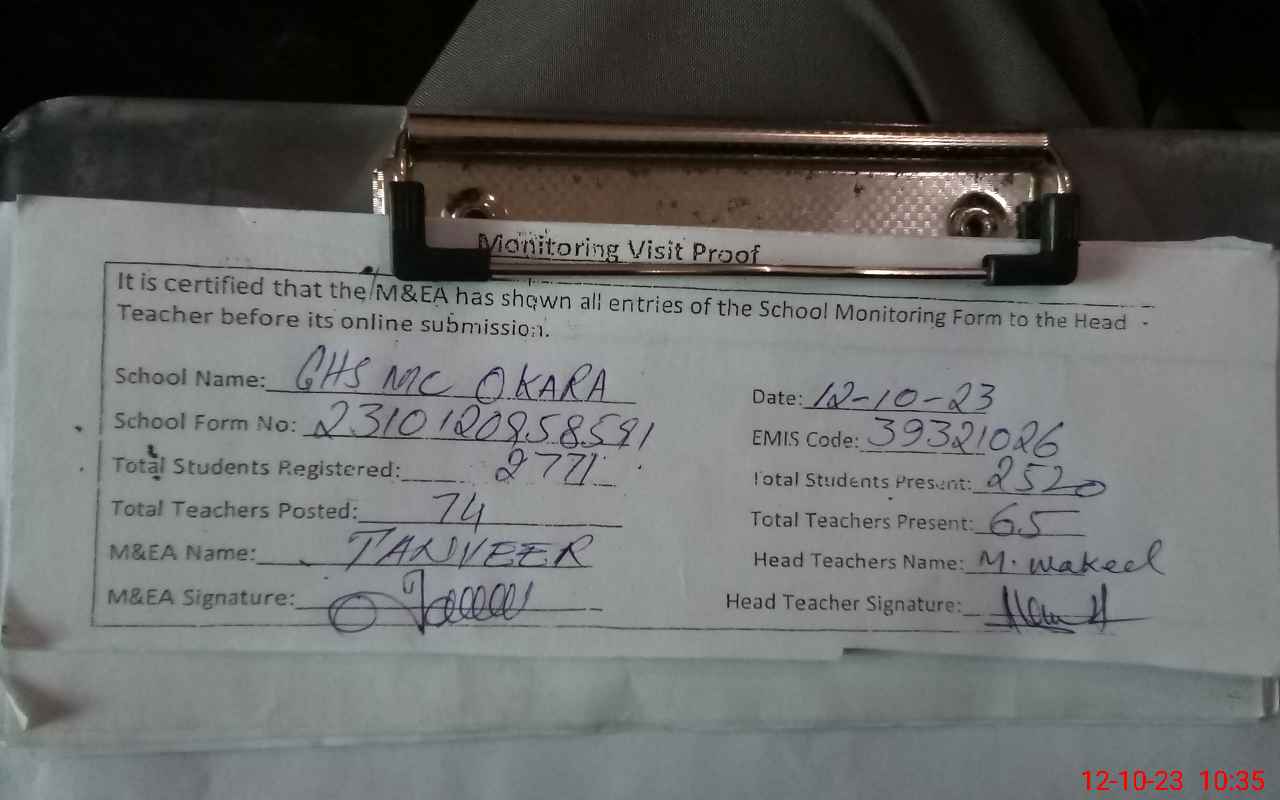 Monitoring Visit Proof
It is certified that the M&EA has shown all entries of the School Monitoring Form to the Head
Teacher before its online submission.
School Name: GHS MC OKARA
Date: 12-10-23
School Form No: 2310120958591
EMIS Code: 39321026
Total Students Registered: 2771
Total Students Present: 2520
Total Teachers Posted: 74
Total Teachers Present: 65
M&EA Name: TANVEER
Head Teachers Name: M. Wakeel
M&EA Signature:
Head Teacher Signature:
12-10-23 10:35